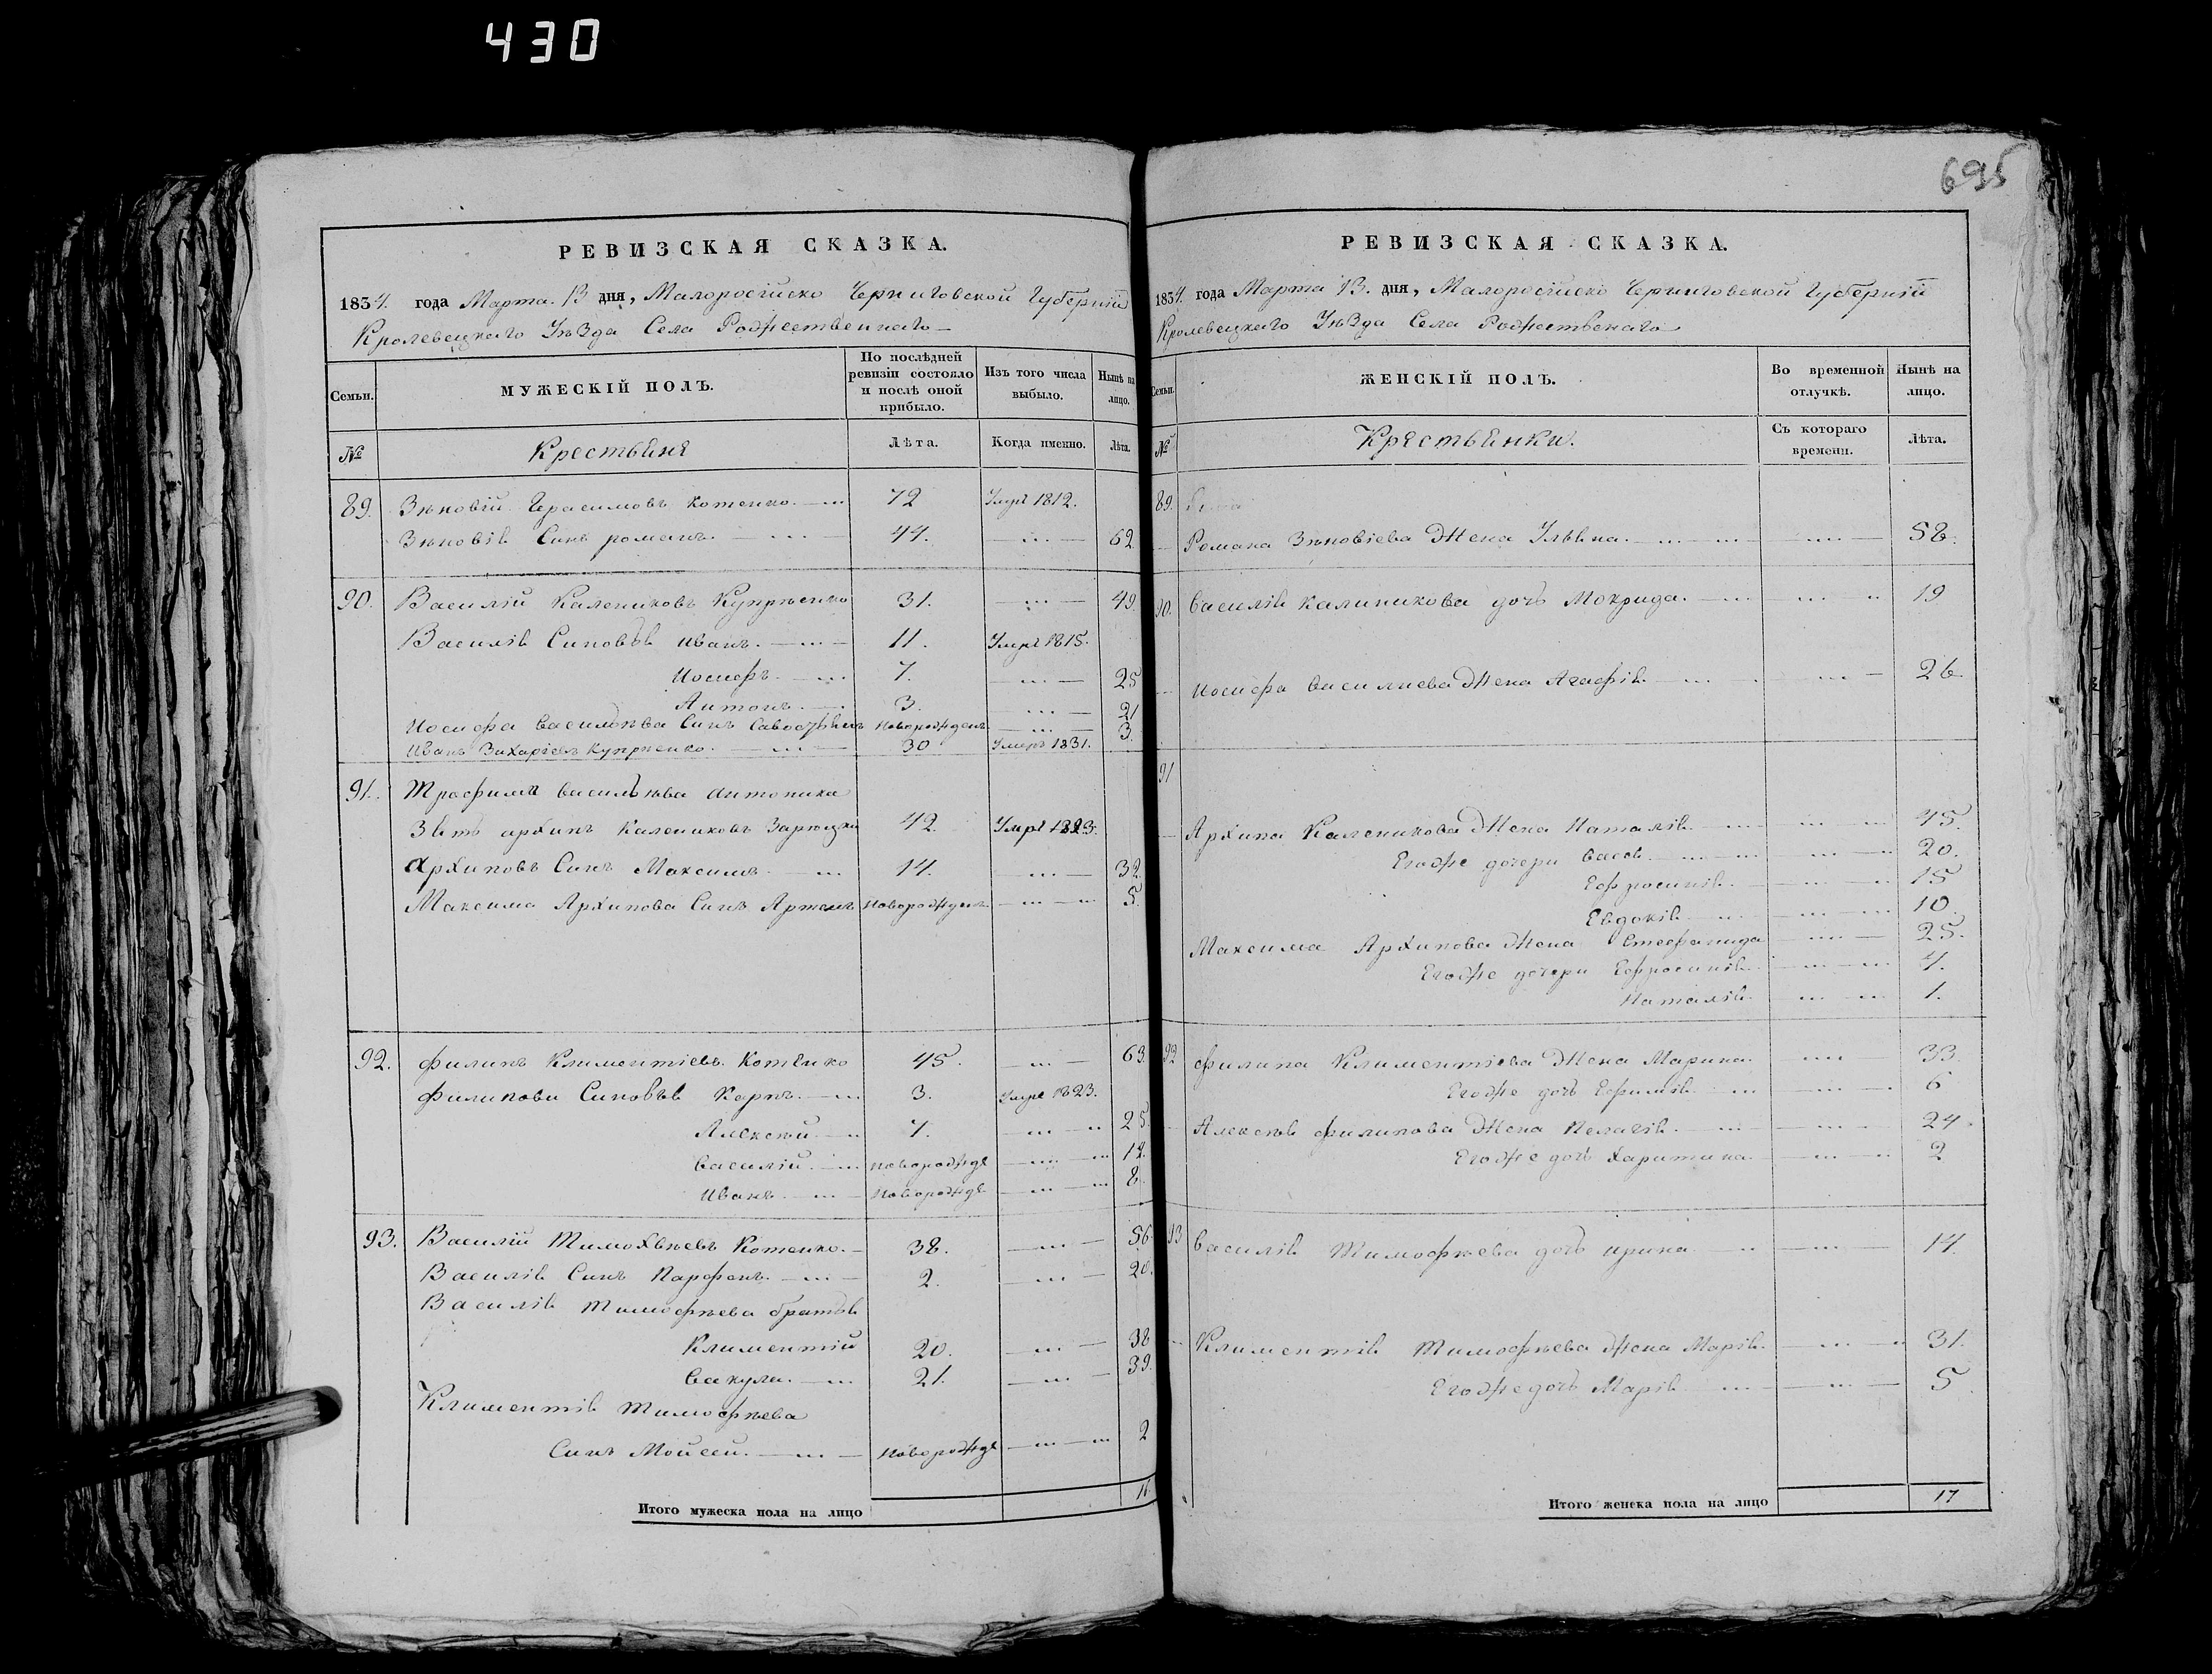 430
695
РЕВИЗСКАЯ СКАЗКА.
1834. года Марта 13 дня, Малоросійско Черниговской Губерніи
Кролевецкаго Уѣзда Села Рождественнаго
Семьи. МУЖЕСКІЙ ПОЛЪ. По послѣдней ревизіи состояло и послѣ оной прибыло. Изъ того числа выбыло. Нынѣ на лицо.
№ Крестьяне Лѣта. Когда именно. Лѣта.
89. Зѣновій Герасимовъ Котенко 72 Умре 1812.
Зѣновія Синъ романъ. 44. 62
90. Василій Калениковъ Купрѣенко 31. 49.
Василія Синовья иванъ. 11. Умре 1815.
Иосифъ 7. 25
Антонъ 3. 21
Иосифа василѣва Синъ Савостьянъ новорожденъ 3.
Иванъ Захаріевъ Купрѣенко. 30 Умеръ 1831.
91. Трофима василѣва Антоника
Зять архипъ Калениковъ 42. Умре 1823.
Архиповъ Синъ Максимъ 14. 32.
Максима Архипова Синъ Артемъ новорожденъ 5.
92. филипъ Климентіевъ Котенко 45. 63.
филипови Синовья Карпъ. 3. Умре 1823.
Алексѣй 7. 25.
василій новорожде 12.
иванъ новорожде 8.
93. Василій Тимохвѣевъ Котенко. 38. 56
Василія Синъ Парфенъ. 2. 20.
Василія Тимофѣева братья
Климентій 20. 38
вакула. 21. 39.
Климентія Тимофѣева
Синъ Мойсей. новорожде 2
Итого мужеска пола на лицо
РЕВИЗСКАЯ СКАЗКА.
1834. года Марта 13. дня, Малоросійско Черниговской Губерніи
Кролевецкаго Уѣзда Села Рожественаго
Семьи. ЖЕНСКІЙ ПОЛЪ. Во временной отлучкѣ. Нынѣ на лицо.
№ Крестьянки. Съ котораго времени. Лѣта.
89.
Романа Зѣновіева жена Ульяна 58.
90. василія калиникова дочь Мокрида. 19
иосифа василиева жена Агафія 26
91
Архипа Каленикова жена Наталія 45.
Егоже дочери васса 20.
Ефросинія 15
Евдокія 10
Максима Архипова жена Стефанида 25.
Егоже дочери Ефросинія 4.
Наталія 1.
92 филипа Климентіева жена Марина. 33.
Егоже дочь Ефимія 6
Алексѣя филипова жена Пелагія 24.
Егоже дочь харитина 2
93 василія Тимофѣева дочь ирина 14.
Климентія Тимофѣева жена Марія. 31.
Егоже дочь Марія 5.
Итого женска пола на лицо 17